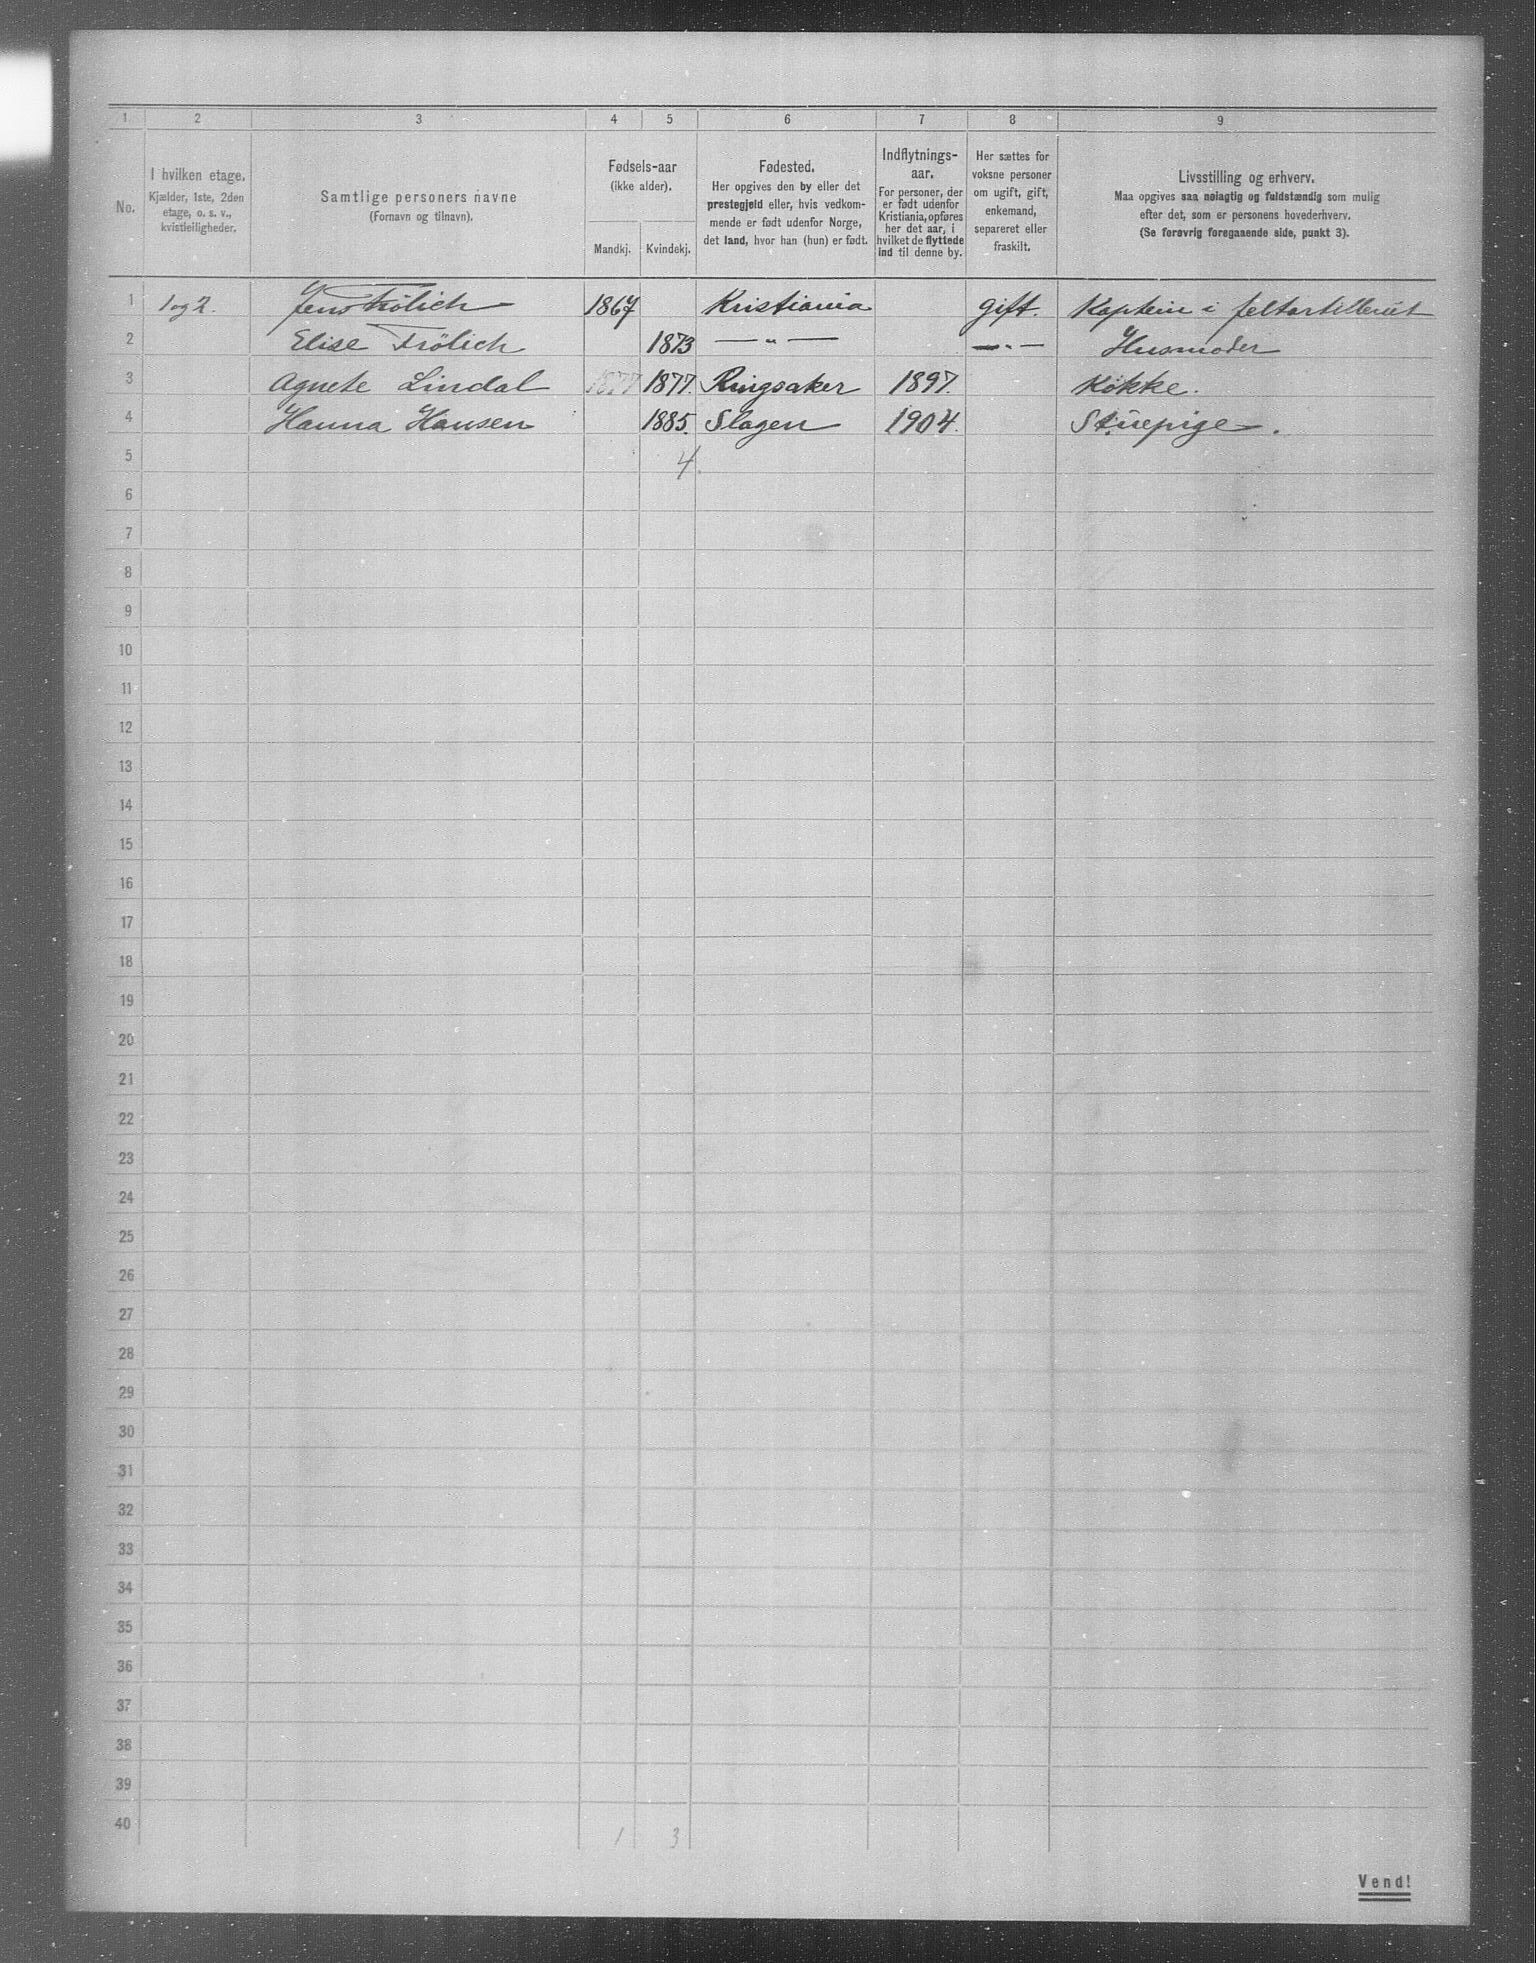 1 2 3 4 5 6 7 8 9
No.
I hvilken etage.
Kjælder, 1ste, 2den
etage, o. s. v.,
kvistleiligheder.
Samtlige personers navne
(Fornavn og tilnavn).
Fødsels-aar
(ikke alder).
Mandkj. Kvindekj.
Fødested.
Her opgives den by eller det
prestegjeld eller, hvis vedkom-
mende er født udenfor Norge,
det land, hvor han (hun) er født.
Indflytnings-
aar.
For personer, der
er født udenfor
Kristiania, opføres
her det aar, i
hvilket de flyttede
ind til denne by.
Her sættes for
voksne personer
om ugift, gift,
enkemand,
separeret eller
fraskilt.
Livsstilling og erhverv.
Maa opgives saa nøiagtig og fuldstændig som mulig
efter det, som er personens hovederhverv.
(Se forøvrig foregaaende side, punkt 3).
1 1 og 2. Jens Frölich 1867 Kristiania gift. Kaptein i feltartilleriet
2 Elise Frölich 1873 — " — — " — Husmoder
3 Agnete Lindal 1877 1877. Ringsaker 1897. Kökke.
4 Hanna Hansen 1885. Slagen 1904. Stuepige.
5 4.
6
7
8
9
10
11
12
13
14
15
16
17
18
19
20
21
22
23
24
25
26
27
28
29
30
31
32
33
34
35
36
37
38
39
40 1 3
Vend!